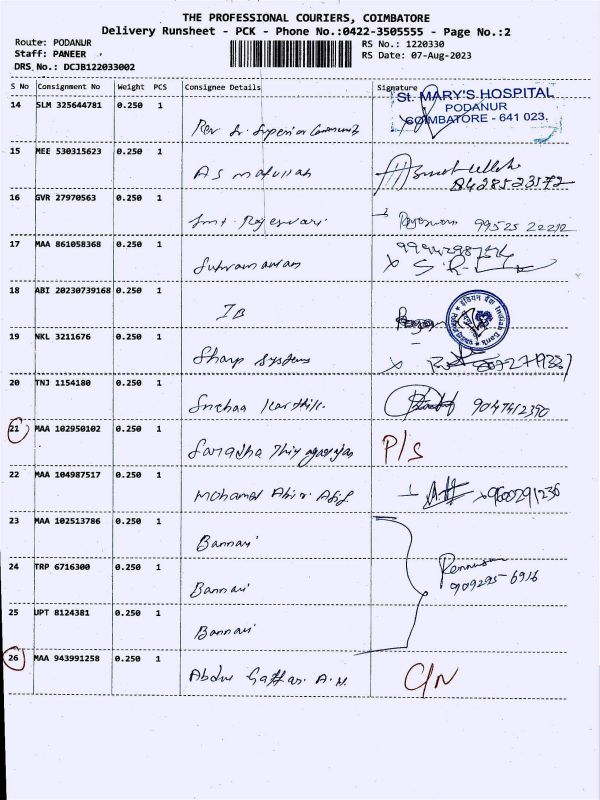 THE PROFESSIONAL COURIERS, COIMBATORE
Delivery Runsheet - PCK - Phone No.:0422-3505555 - Page No.:2
Route: PODANUR
RS No.: 1220330
Staff: PANEER
RS Date: 07-Aug-2023
DRS No.: DCJB122033002
S No Consignment No Weight PCS Consignee Details Signature
St. MARY'S HOSPITAL
PODANUR
COIMBATORE - 641 023.
14 SLM 325644781 0.250 1
Rev Sr. Superior Community
15 MEE 530315623 0.250 1
Asmatullah
8428523572
16 GVR 27970563 0.250 1
Smt. Rajeswari 99525 22212
17 MAA 861058368 0.250 1
18 ABI 20230739168 0.250 1
IB
Indian Bank
19 NKL 3211676 0.250 1
Sharp Systems
20 TNJ 1154180 0.250 1
Snehaa Karthik. 9047412390
21 MAA 102950102 0.250 1
Saradha Thiyagarajan P/S
22 MAA 104987517 0.250 1
Mohamed 9600291236
23 MAA 102513786 0.250 1
Bannari
24 TRP 6716300 0.250 1
Bannari 909295-6916
25 UPT 8124381 0.250 1
Bannari
26 MAA 943991258 0.250 1
Abdul Gaffar. A.M. C/N